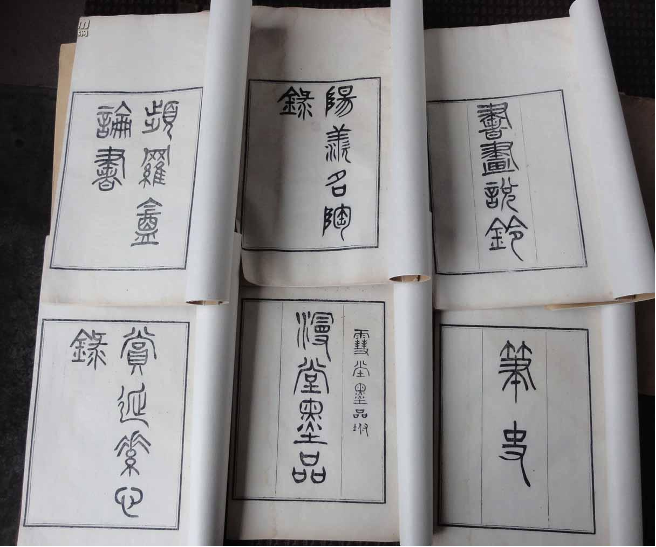 頻羅盦
論書
陽羨名陶
錄
書畫說鈴
賞延素心
錄
雪堂墨品附
漫堂墨品
筆史